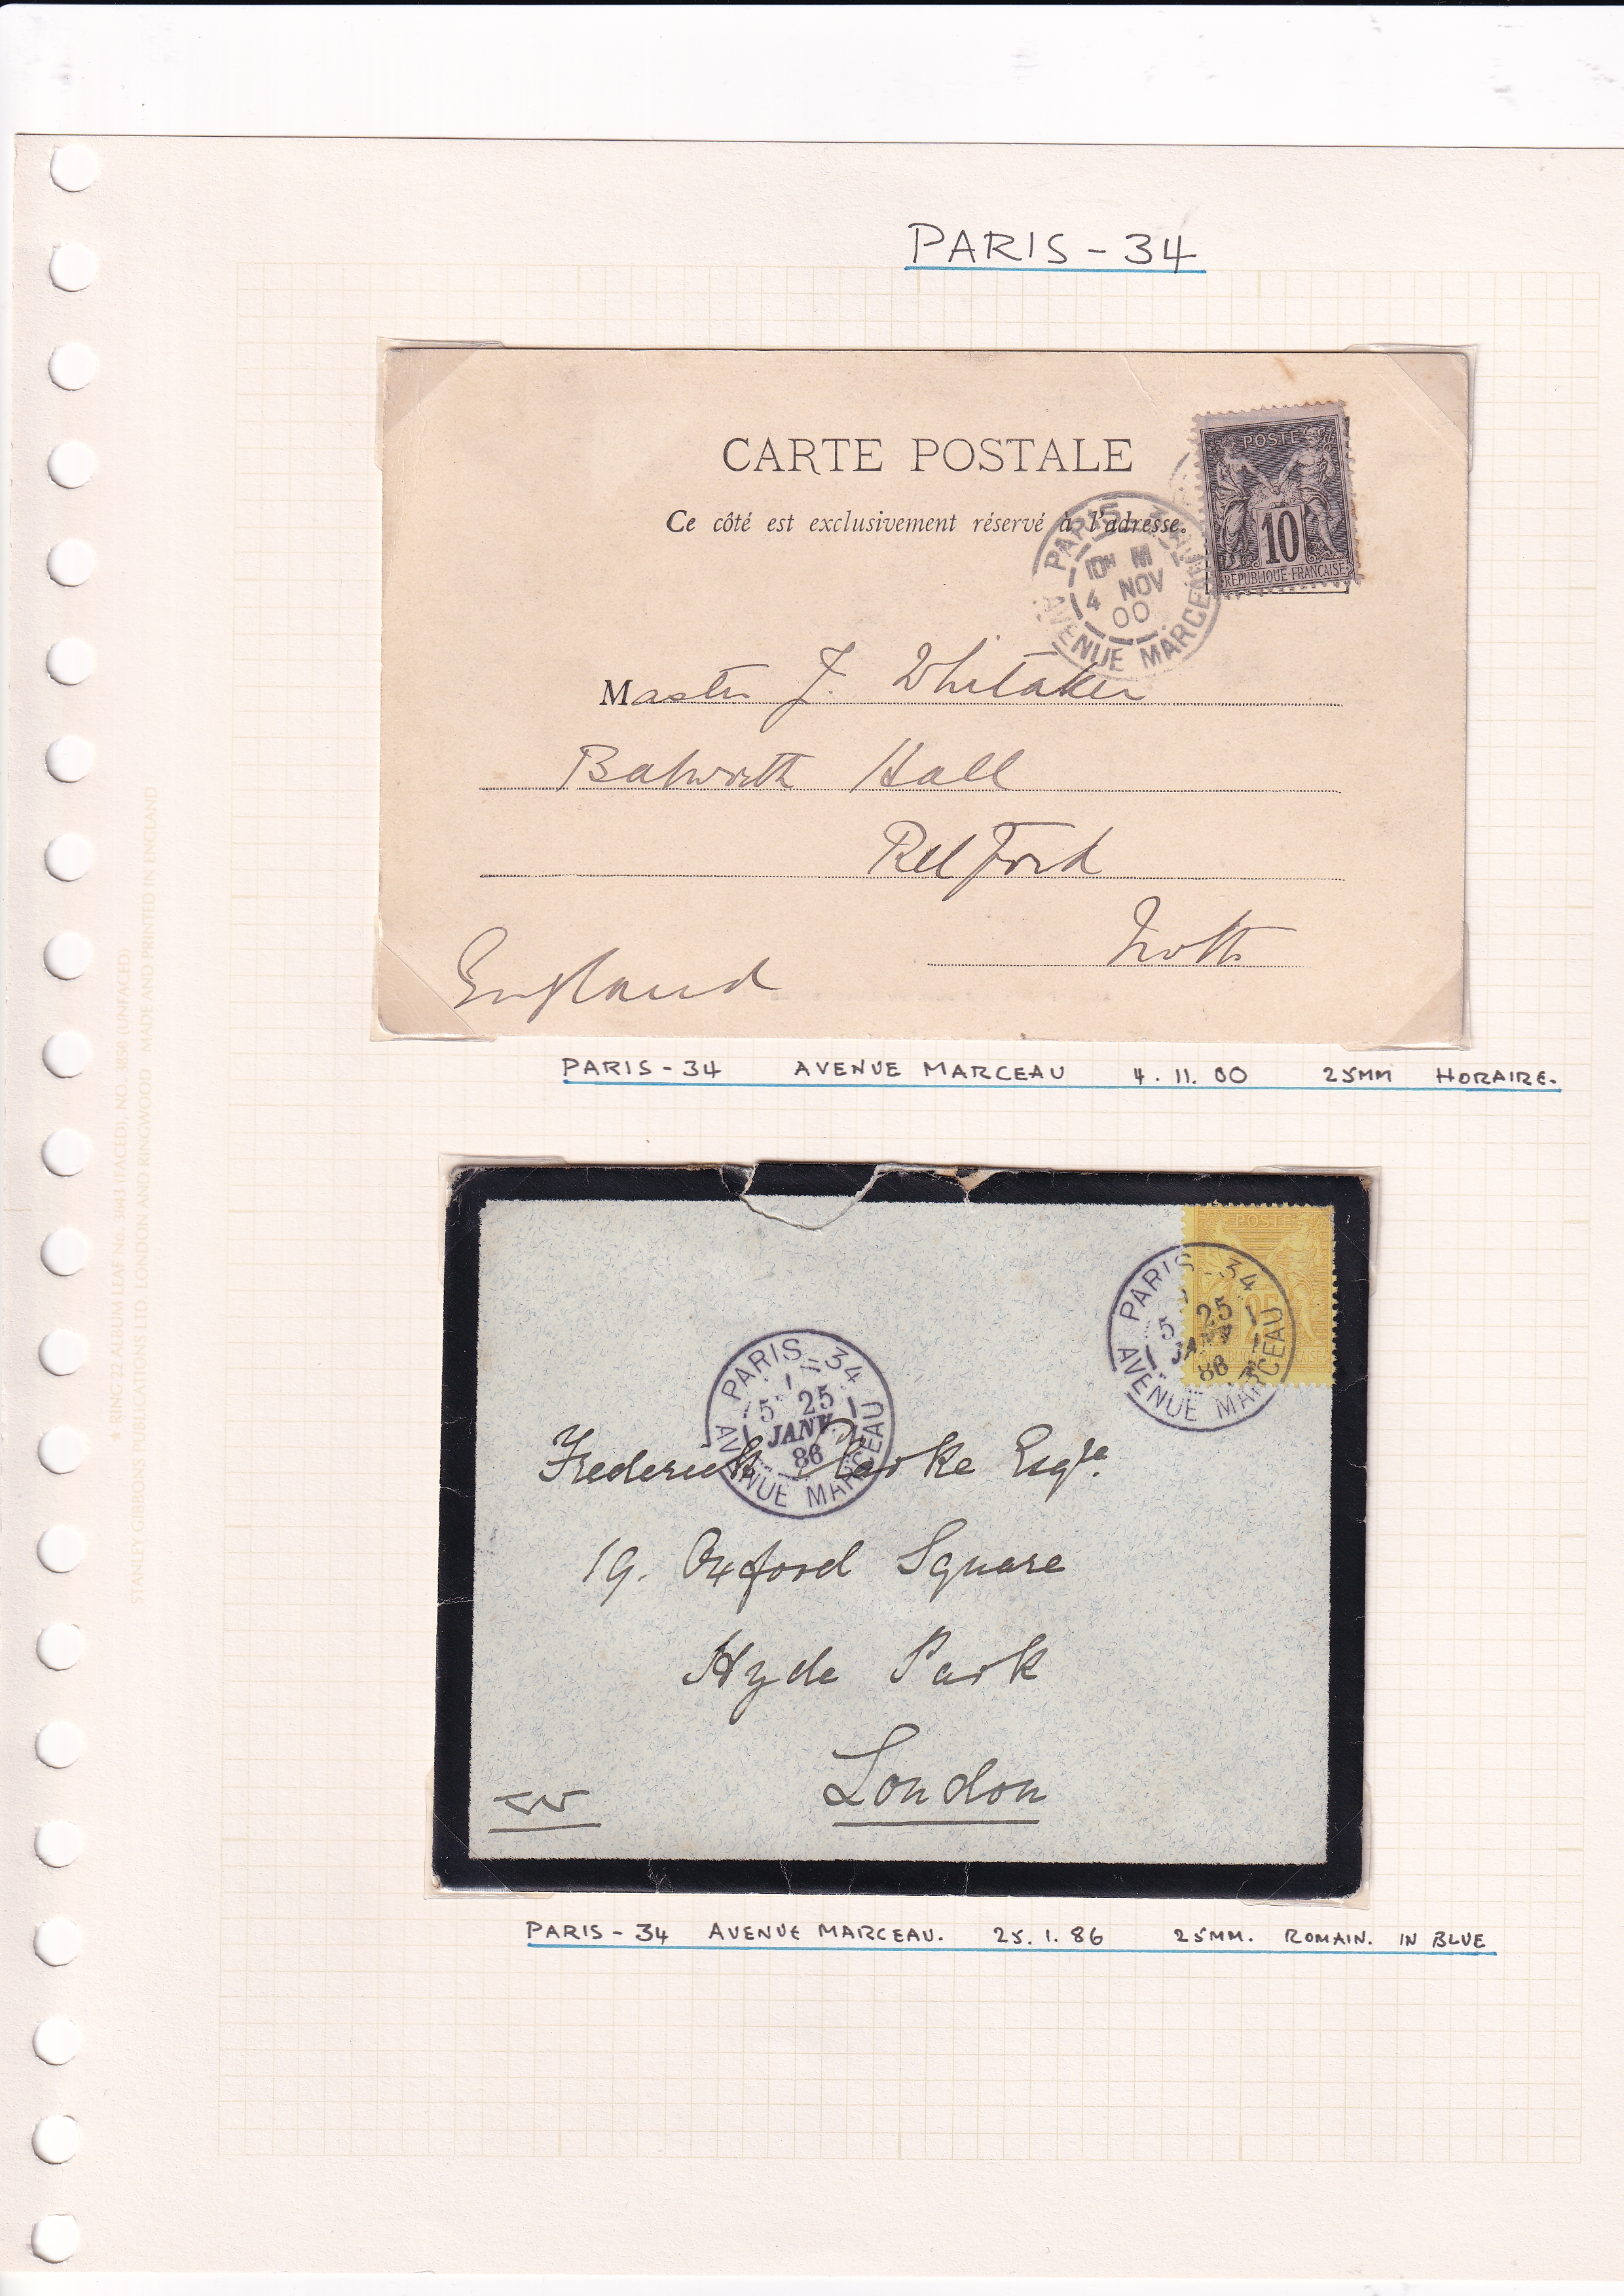 PARIS - 34
CARTE POSTALE
Ce côté est exclusivement réservé à l'adresse.
POSTE
10
REPUBLIQUE FRANÇAISE
PARIS
10H M
4 NOV
00
AVENUE MARCEAU
Master J. Whitaker
Babworth Hall
Retford
Notts
England
PARIS - 34 AVENUE MARCEAU 4. 11. 00 25MM HORAIRE.
POSTE
25
PARIS - 34
5 25
JANV
86
AVENUE MARCEAU
PARIS - 34
5 25
JANV.
86
AVENUE MARCEAU
Frederick Esqre.
19. Oxford Square
Hyde Park
London
PARIS - 34 AVENUE MARCEAU. 25. 1. 86 25MM. ROMAIN. IN BLUE
STANLEY GIBBONS PUBLICATIONS LTD LONDON AND RINGWOOD MADE AND PRINTED IN ENGLAND